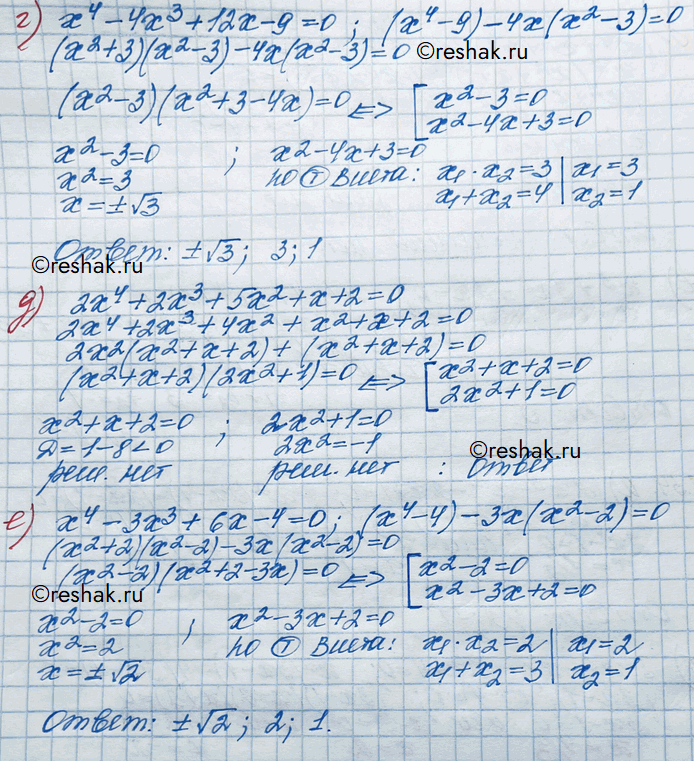 г) x⁴ - 4x³ + 12x - 9 = 0 ; (x⁴ - 9) - 4x(x² - 3) = 0
(x² + 3)(x² - 3) - 4x(x² - 3) = 0 ©reshak.ru
(x² - 3)(x² + 3 - 4x) = 0 <=> [ x² - 3 = 0
x² - 4x + 3 = 0
x² - 3 = 0 ; x² - 4x + 3 = 0
x² = 3 по Ⓣ Виета: x₁ · x₂ = 3 | x₁ = 3
x = ±√3 x₁ + x₂ = 4 | x₂ = 1
Ответ: ±√3 ; 3 ; 1
©reshak.ru
д) 2x⁴ + 2x³ + 5x² + x + 2 = 0
2x⁴ + 2x³ + 4x² + x² + x + 2 = 0
2x²(x² + x + 2) + (x² + x + 2) = 0
(x² + x + 2)(2x² + 1) = 0 <=> [ x² + x + 2 = 0
2x² + 1 = 0
x² + x + 2 = 0 ; 2x² + 1 = 0
Д = 1 - 8 < 0 2x² = -1 ©reshak.ru
реш. нет реш. нет : Ответ
е) x⁴ - 3x³ + 6x - 4 = 0 ; (x⁴ - 4) - 3x(x² - 2) = 0
(x² + 2)(x² - 2) - 3x(x² - 2) = 0
(x² - 2)(x² + 2 - 3x) = 0 <=> [ x² - 2 = 0
©reshak.ru x² - 3x + 2 = 0
x² - 2 = 0 ; x² - 3x + 2 = 0
x² = 2 по Ⓣ Виета: x₁ · x₂ = 2 | x₁ = 2
x = ±√2 x₁ + x₂ = 3 | x₂ = 1
Ответ: ±√2 ; 2 ; 1.